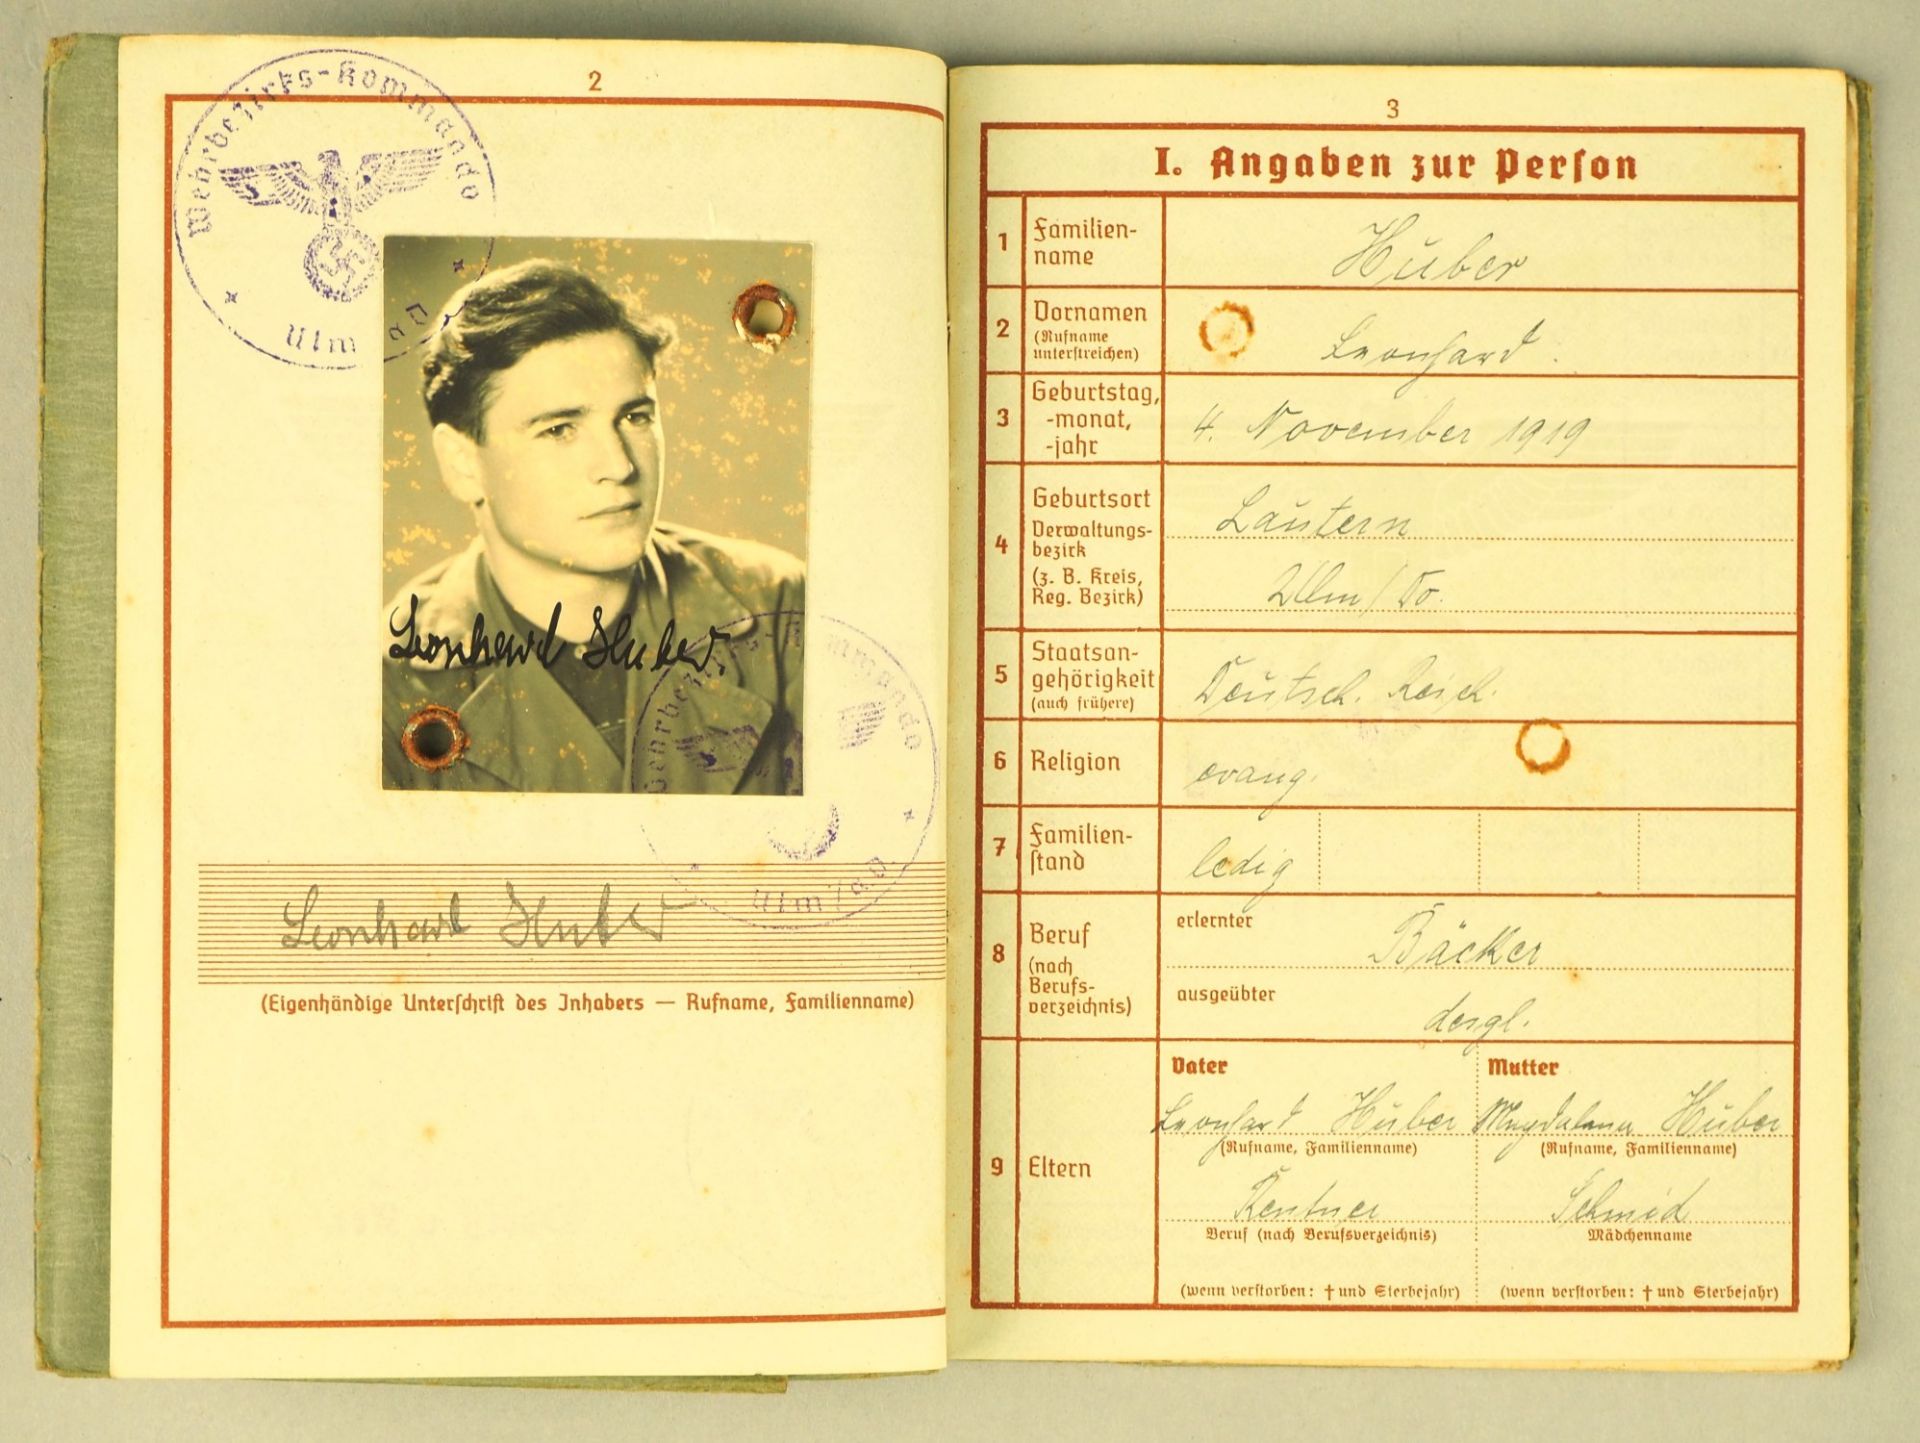 2
Wehrbezirks-Kommando
Ulm a D
Leonhard Huber
Wehrbezirks-Kommando
Ulm/a D.
Leonhard Huber
(Eigenhändige Unterſchrift des Inhabers — Rufname, Familienname)
3
I. Angaben zur Perſon
1 Familien-
name
Huber
2 Vornamen
(Rufname
unterſtreichen)
Leonhard.
3 Geburtstag,
-monat,
-jahr
4. November 1919
4 Geburtsort
Verwaltungs-
bezirk
(z. B. Kreis,
Reg. Bezirk)
Lautern
Ulm/Do.
5 Staatsan-
gehörigkeit
(auch frühere)
Deutsch. Reich.
6 Religion
evang.
7 Familien-
ſtand
ledig
8 Beruf
(nach
Berufs-
verzeichnis)
erlernter
Bäcker
ausgeübter
desgl.
9 Eltern
Vater
Leonhard Huber
(Rufname, Familienname)
Rentner
Beruf (nach Berufsverzeichnis)
(wenn verſtorben: † und Sterbejahr)
Mutter
Magdalena Huber
(Rufname, Familienname)
Schmid
Mädchenname
(wenn verſtorben: † und Sterbejahr)